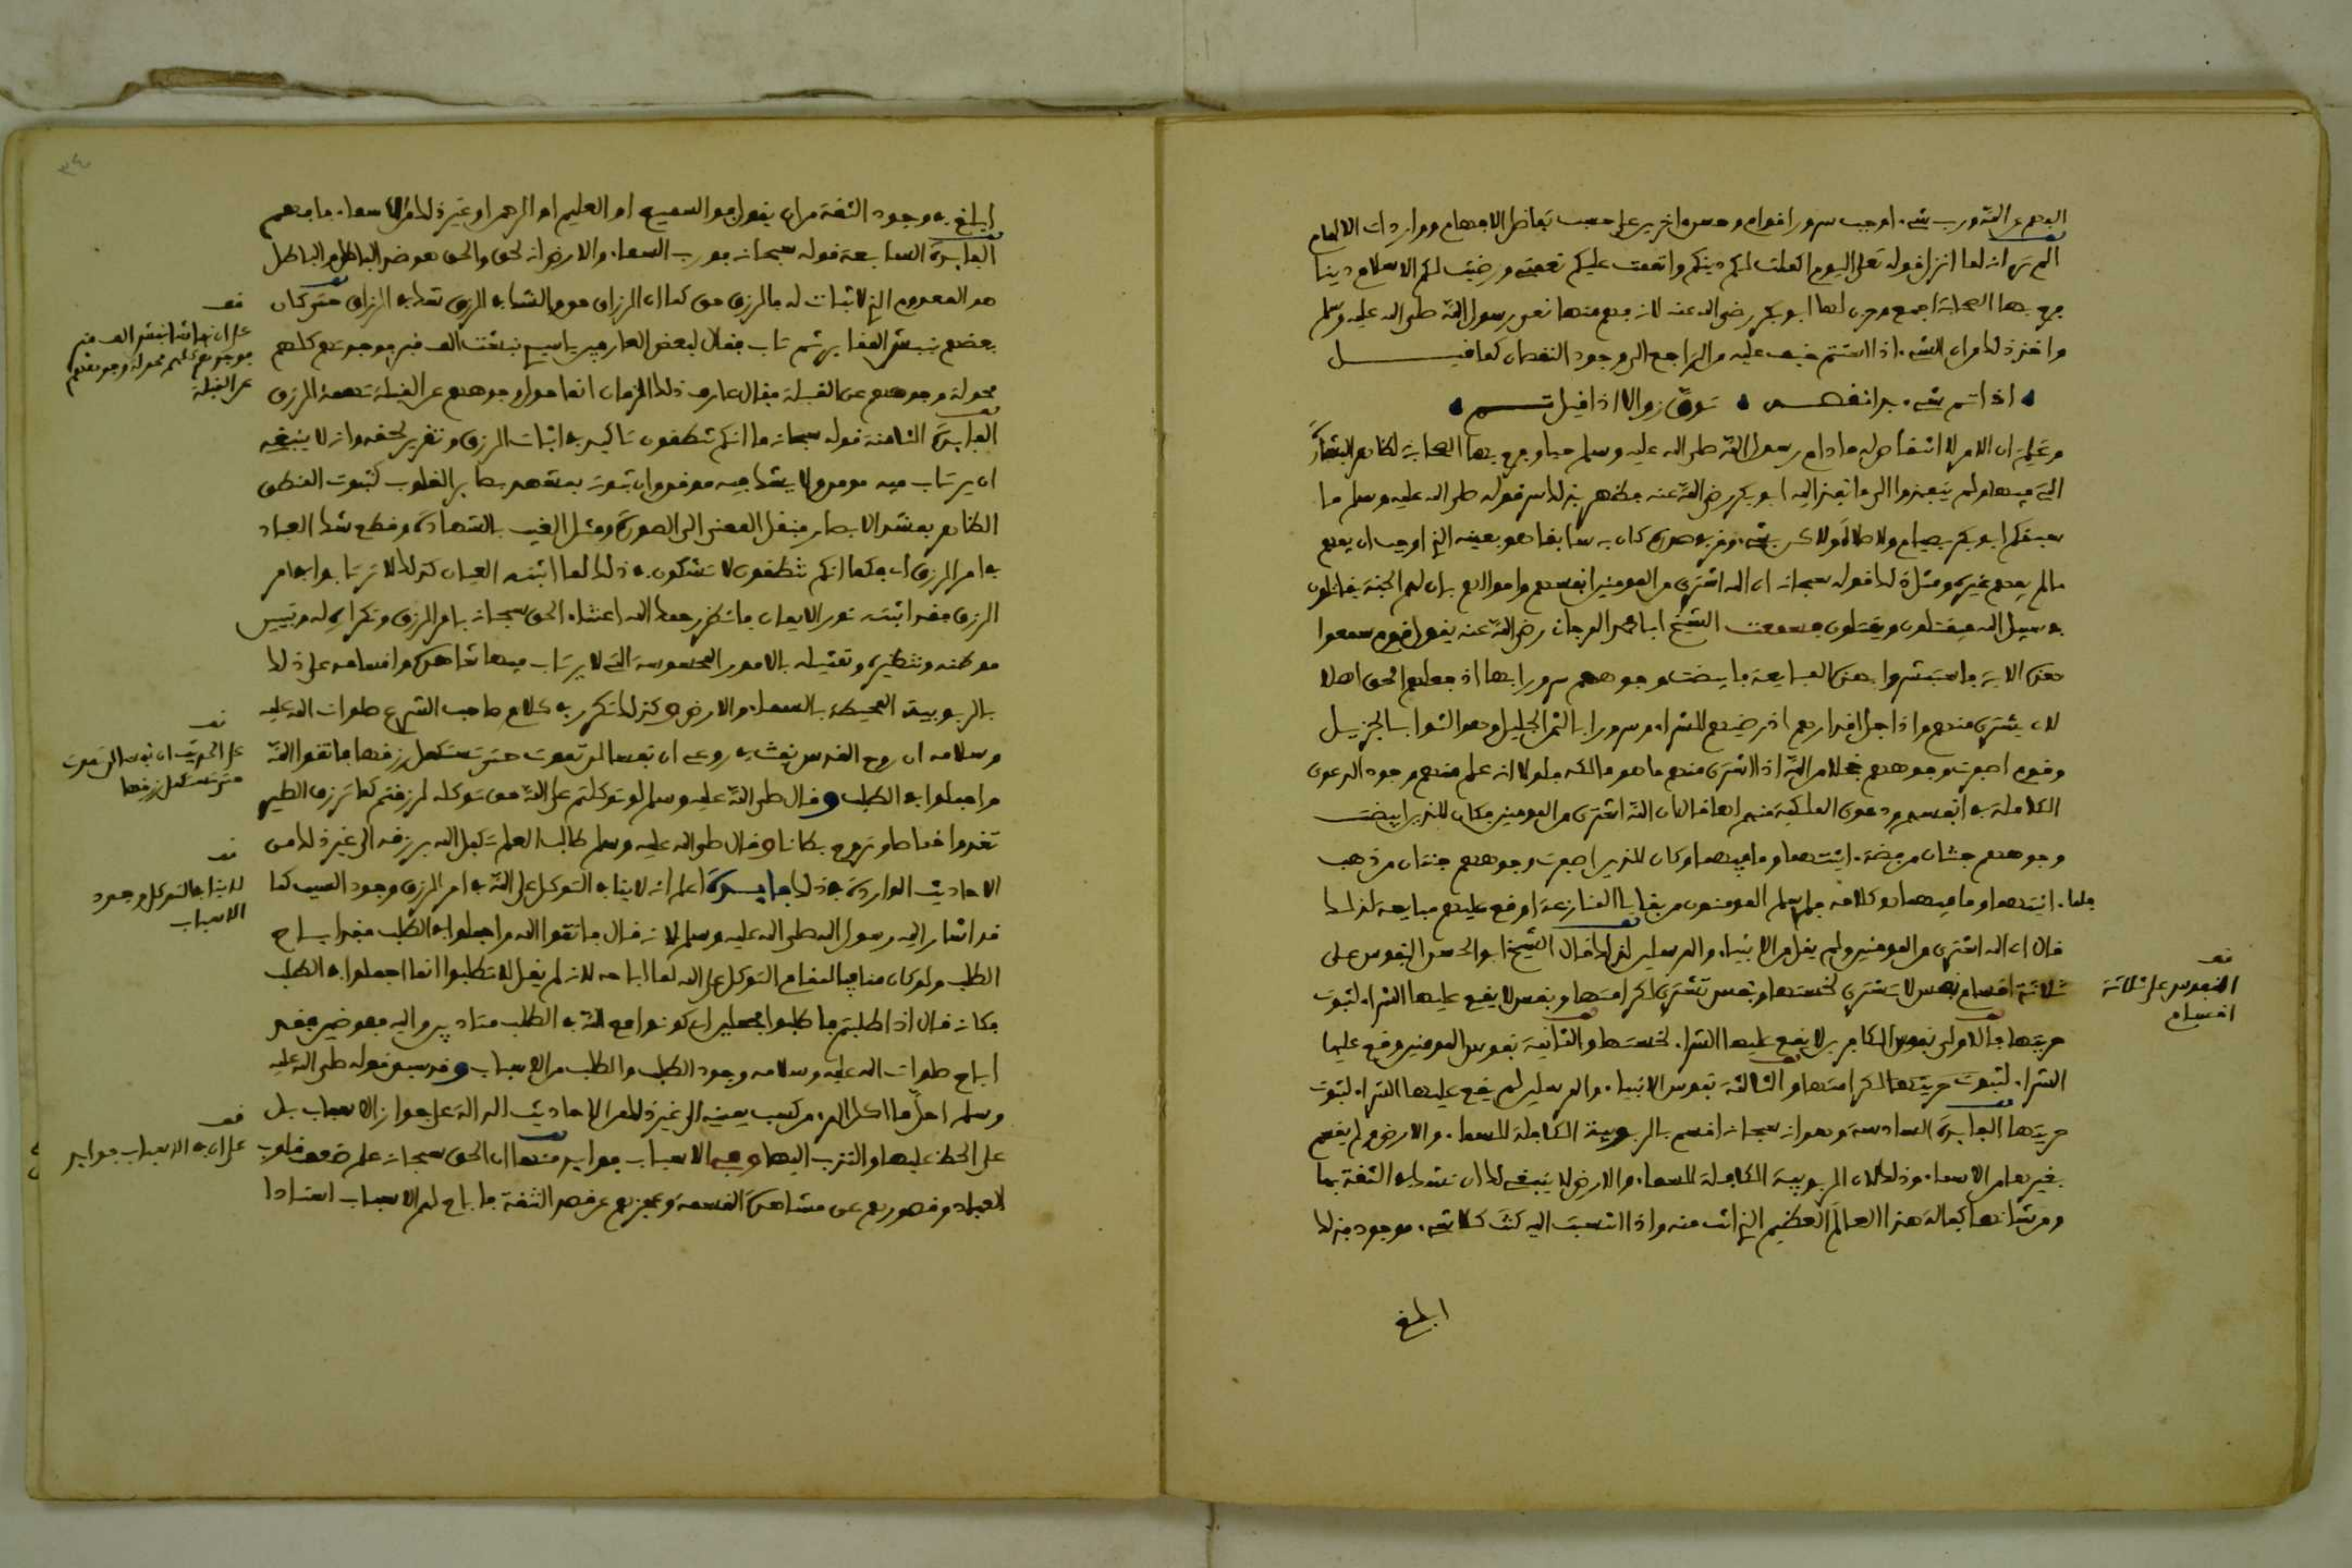 الفهم عن الله ورب شيء اوجب سرور اقوام وحزن اخرين على حسب تفاضل الافهام وواردات الالهام
الم تر انه لما انزل قوله تعلى اليوم اكملت لكم دينكم واتممت عليكم نعمتي ورضيت لكم الاسلام دينا
فرح بها الصحابة اجمع وحزن لها ابو بكر رضي الله عنه لانه فهم منها نعي رسول الله صلى الله عليه وسلم
واخذ ذلك من ان الشيء اذا استتم خيف عليه من التراجع الى وجود النقصان كما قيل
اذا تم شيء بدا نقصه توق زوالا اذا قيل تم
وعلم ان الامر لا انتقاص له ما دام رسول الله صلى الله عليه وسلم حيا وفرح بها الصحابة لظاهر البشارة
التي فيها ولم ينفذوا الى ما نفذ اليه ابو بكر رضي الله عنه فظهر بذلك سر قوله صلى الله عليه وسلم ما
سبقكم ابو بكر بصيام ولا صلاة ولاكن بشيء وقر في صدره كان به سابقا هو بعينه الذي اوجب ان يفهم
ما لم يفهم غيره ومثل ذلك قوله سبحانه ان الله اشترى من المومنين انفسهم واموالهم بان لهم الجنة يقاتلون
في سبيل الله فيقتلون ويقتلون وسمعت الشيخ ابا محمد المرجاني رضي الله عنه يقول قوم سمعوا
هذه الاية فاستبشروا بهذه المبايعة فابيضت وجوههم سرورا بها اذ جعلهم الحق اهلا
لان يشتري منهم واذ اجل اقدارهم اذ رضيهم للشراء وسرورا بالثمن الجليل وهو الثواب الجزيل
وقوم اصفرت وجوههم خجلا من الله اذ اشترى منهم ما هو مالكه فلولا انه علم منهم وجود الدعوى
الكاملة في انفسهم ودعوى الملكية منهم لها ما قال ان الله اشترى من المومنين فكان للذين ابيضت
وجوههم جنتان من فضة ءانيتهما وما فيهما وكان للذين اصفرت وجوههم جنتان من ذهب
ءانيتهما وما فيهما فلو سلم المومنون من بقايا المنازعة ما وقع عليهم مبايعة لذلك
قال ان الله اشترى من المومنين ولم يقل من الانبياء والمرسلين لذلك قال الشيخ ابو الحسن النفوس على
ثلاثة اقسام نفس لا تشترى لخستها ونفس تشترى لكرامتها ونفس لا يقع عليها الشراء لثبوت
حريتها فالاولى نفوس الكافرين لا يقع عليها الشراء لخستها والثانية نفوس المومنين وقع عليها
الشراء لكرامتها والثالثة نفوس الانبياء والمرسلين لم يقع عليها الشراء لثبوت
حريتها الفايدة السادسة وهو انه سبحانه اقسم بالربوبية الكافلة للسماء والارض ولم يقسم
بغيرها من الاسماء وذلك لان الربوبية الكافلة للسماء والارض لا ينبغي لك ان تشك في الثقة بها
ومن شانها كفالة هذا العالم العظيم الذي انت منه واذا انتسبت اليه كنت كلا شيء موجود فذلك
ابلغ
فف
النفوس على ثلاثة
اقسام
ابلغ في وجود الثقة من ان يقول فو السميع او العليم او الرحمن او غير ذلك من الاسماء فافهم
الفايدة السابعة قوله سبحانه فورب السماء والارض انه لحق والحق هو ضد الباطل والباطل
هو المعدوم الذي لا ثبات له فالرزق حق كما ان الرزاق حق والشك في الرزق شك في الرزاق حتى كان
بعضهم نبش المقابر ثم تاب فقال لبعض العارفين يا سيدي نبشت الف قبر فوجدتهم كلهم
محولة وجوههم عن القبلة فقال عارف ذلك الزمان انما حول وجوههم عن القبلة تهمة الرزق
الفايدة الثامنة قوله سبحانه ما انكم تنطقون تاكيد في اثبات الرزق وتقرير لحقه وانه لا ينبغي
ان يرتاب فيه مومن ولا يشك فيه موقن وان ثبوته بمشهد بصاير القلوب كثبوت المنطق
الظاهر بمشهد الابصار فنقل المعنى الى الصورة ومثل الغيب بالشهادة وقطع شك العباد
في امر الرزق اي فكما انكم تنطقون لا تشكون في ذلك لما اثبته العيان كذلك لا ترتابوا في امر
الرزق فقد اثبته نور الايمان فانظر رحمك الله اعتناء الحق سبحانه بامر الرزق وتكراره له وتبيين
موطنه وتنظيره وتمثيله بالامور المحسوسة التي لا يرتاب فيها شاهد واقسامه على ذلك
بالربوبية المحيطة بالسماء والارض وكذلك تكرر في كلام صاحب الشرع صلوات الله عليه
وسلامه ان روح القدس نفث في روعي ان نفسا لن تموت حتى تستكمل رزقها فاتقوا الله
واجملوا في الطلب وقال صلى الله عليه وسلم لو توكلتم على الله حق توكله لرزقتم كما ترزق الطير
تغدوا خماصا وتروح بطانا وقال صلى الله عليه وسلم طالب العلم تكفل الله برزقه الى غير ذلك من
الاحاديث الواردة في ذلك فايدة اعلم انه لا ينافي التوكل على الله في امر الرزق وجود السبب كما
قد اشار اليه رسول الله صلى الله عليه وسلم لانه قال فاتقوا الله واجملوا في الطلب فقد اباح
الطلب ولو كان منافيا لمقام التوكل على الله لما اباحه لانه لم يقل لا تطلبوا انما اجملوا في الطلب
فكانه قال اذا طلبتم فاطلبوا مجملين اي كونوا مع الله في الطلب متادبين واليه مفوضين فقد
اباح صلوات الله عليه وسلامه وجود الطلب والطلب من الاسباب وقد سبق قوله صلى الله عليه
وسلم احل ما اكل المرء من كسب يمينه الى غير ذلك من الاحاديث الدالة على جواز الاسباب بل
على الحظ عليها والندب اليها وفي الاسباب فوايد منها ان الحق سبحانه علم ضعف قلوب
العباد وقصورهم عن مشاهدة القسمة وعجزهم عن صدق الثقة فاباح لهم الاسباب اسنادا
فف
على ان نباشا نبش الف قبر
فوجدهم كلهم محولة وجوههم
عن القبلة
فف
على الحديث ان نفسا لن تموت
حتى تستكمل رزقها
فف
لا ينافي التوكل وجود
الاسباب
فف
على ان في الاسباب فوايد